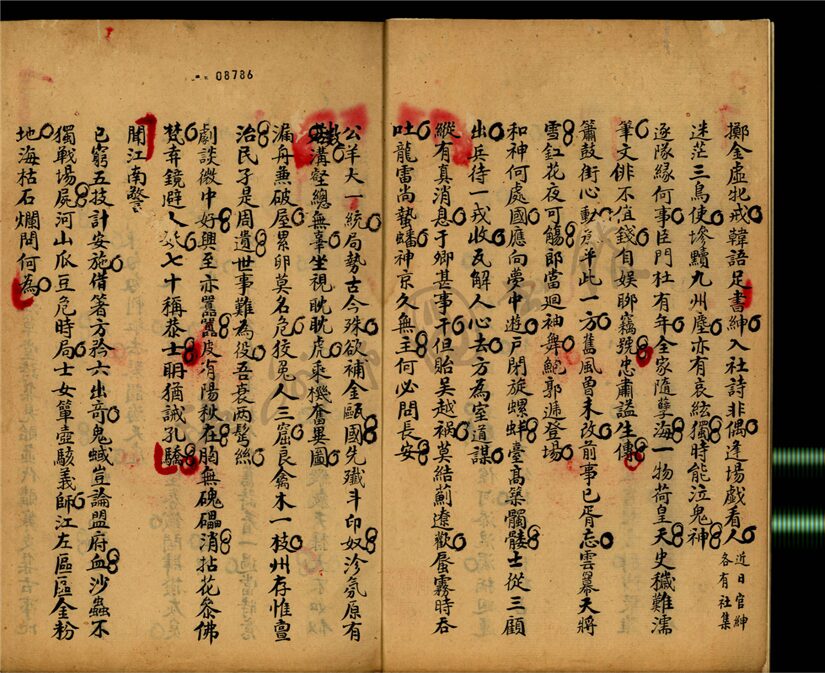 08786
擲金虛牝戒韓語足書紳入社詩非偶逢場戲看人
近日官紳
各有社集
迷茫三鳥使慘黷九州塵亦有哀絃獨時能泣鬼神
逐隊緣何事臣門杜有年全家隨孽海一物荷皇天史穢難濡
筆文俳不值錢自娛聊竊號忠肅謚生傳
簫鼓街心動半此一方舊風曾未改前事已胥忘雲幕天將
雪釭花夜可觴郎當迴袖舞鮑郭遞登場
和神何處國應向夢中遊戶閉旋螺蚌臺高築髑髏士從三顧
出兵待一戎收瓦解人心去方為室道謀
縱有真消息于卿甚事干但貽吳越禍莫結薊遼歡蜃霧時吞
吐龍雷尚蟄蟠神京久無主何必問長安
公羊大一統局勢古今殊欲補金甌國先殲斗印奴沴氛原有
溝壑總無辜坐視眈眈虎乘機奮異圖
漏舟兼破屋累卵莫名危狡兔人三窟良禽木一枝州存惟亶
治民孑是周遺世事難為役吾衰兩鬢絲
劇談微中好興至亦嚚嚚皮有陽秋在胸無磈礧消拈花參佛
梵弄鏡避人七十稱恭士明猶誡孔驕
聞江南警
已窮五技計安施借箸方矜六出奇鬼蜮豈論盟府血沙蟲不
獨戰場屍河山瓜豆危時局士女簞壺駭義師江左區區金粉
地海枯石爛問何為